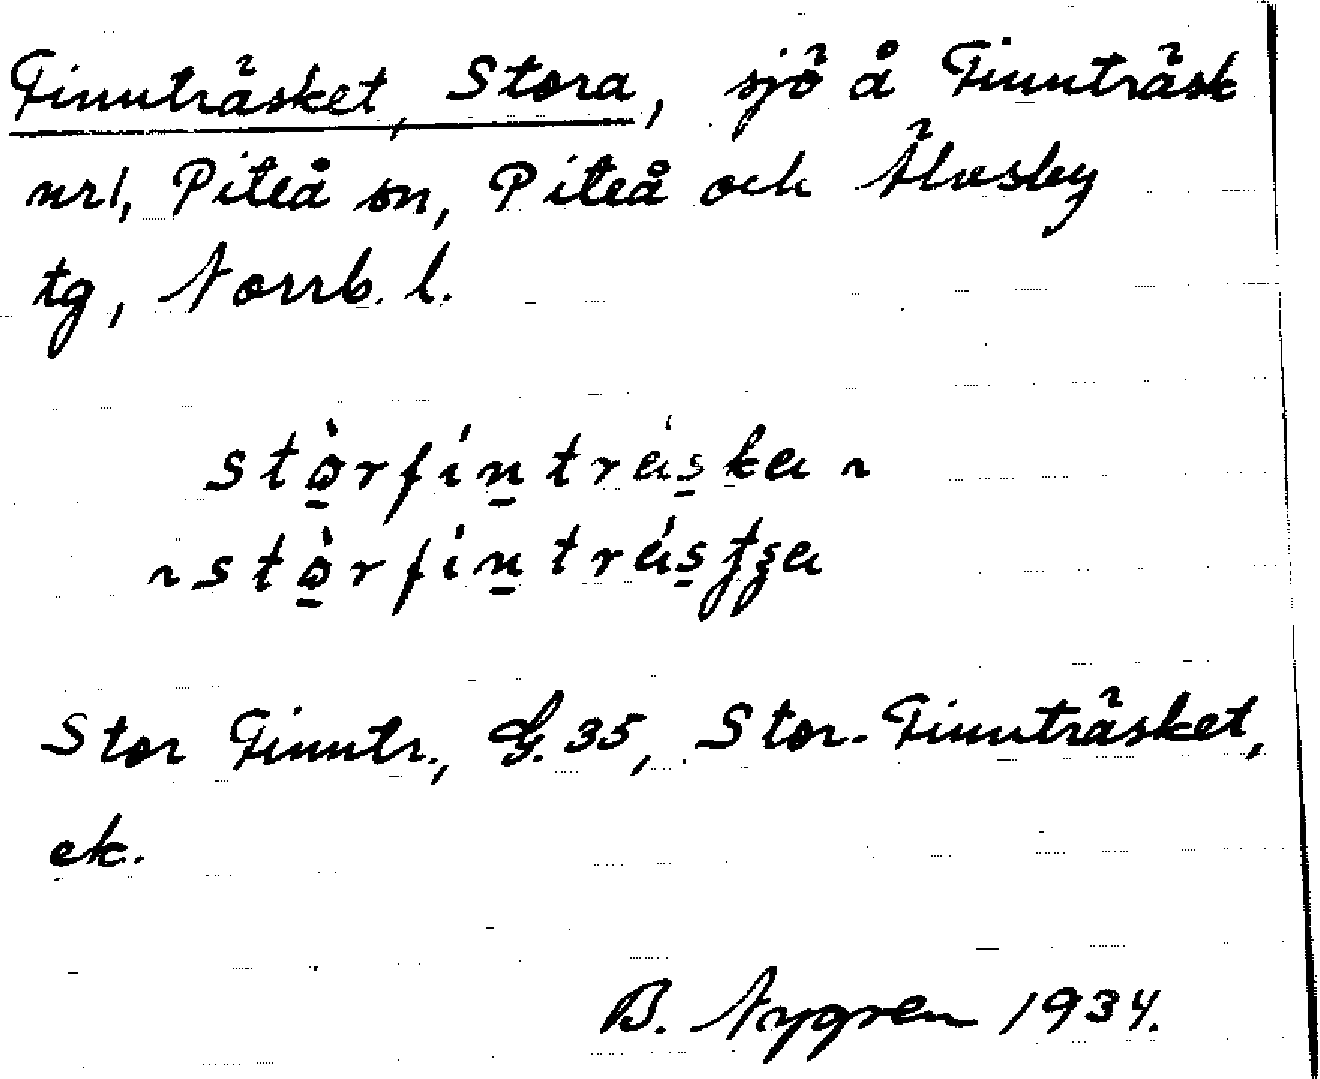 Finnträsket, Stora, sjö å Finnträsk
nr1, Piteå sn, Piteå och Älvsby
tg, Norrb. l.
stò̱rfíṉträs̱ka ~
~ stò̱rfíṉträs̱
Stor Finntr., G. 35, Stor-Finnträsket,
ek.
B. Nygren 1934.